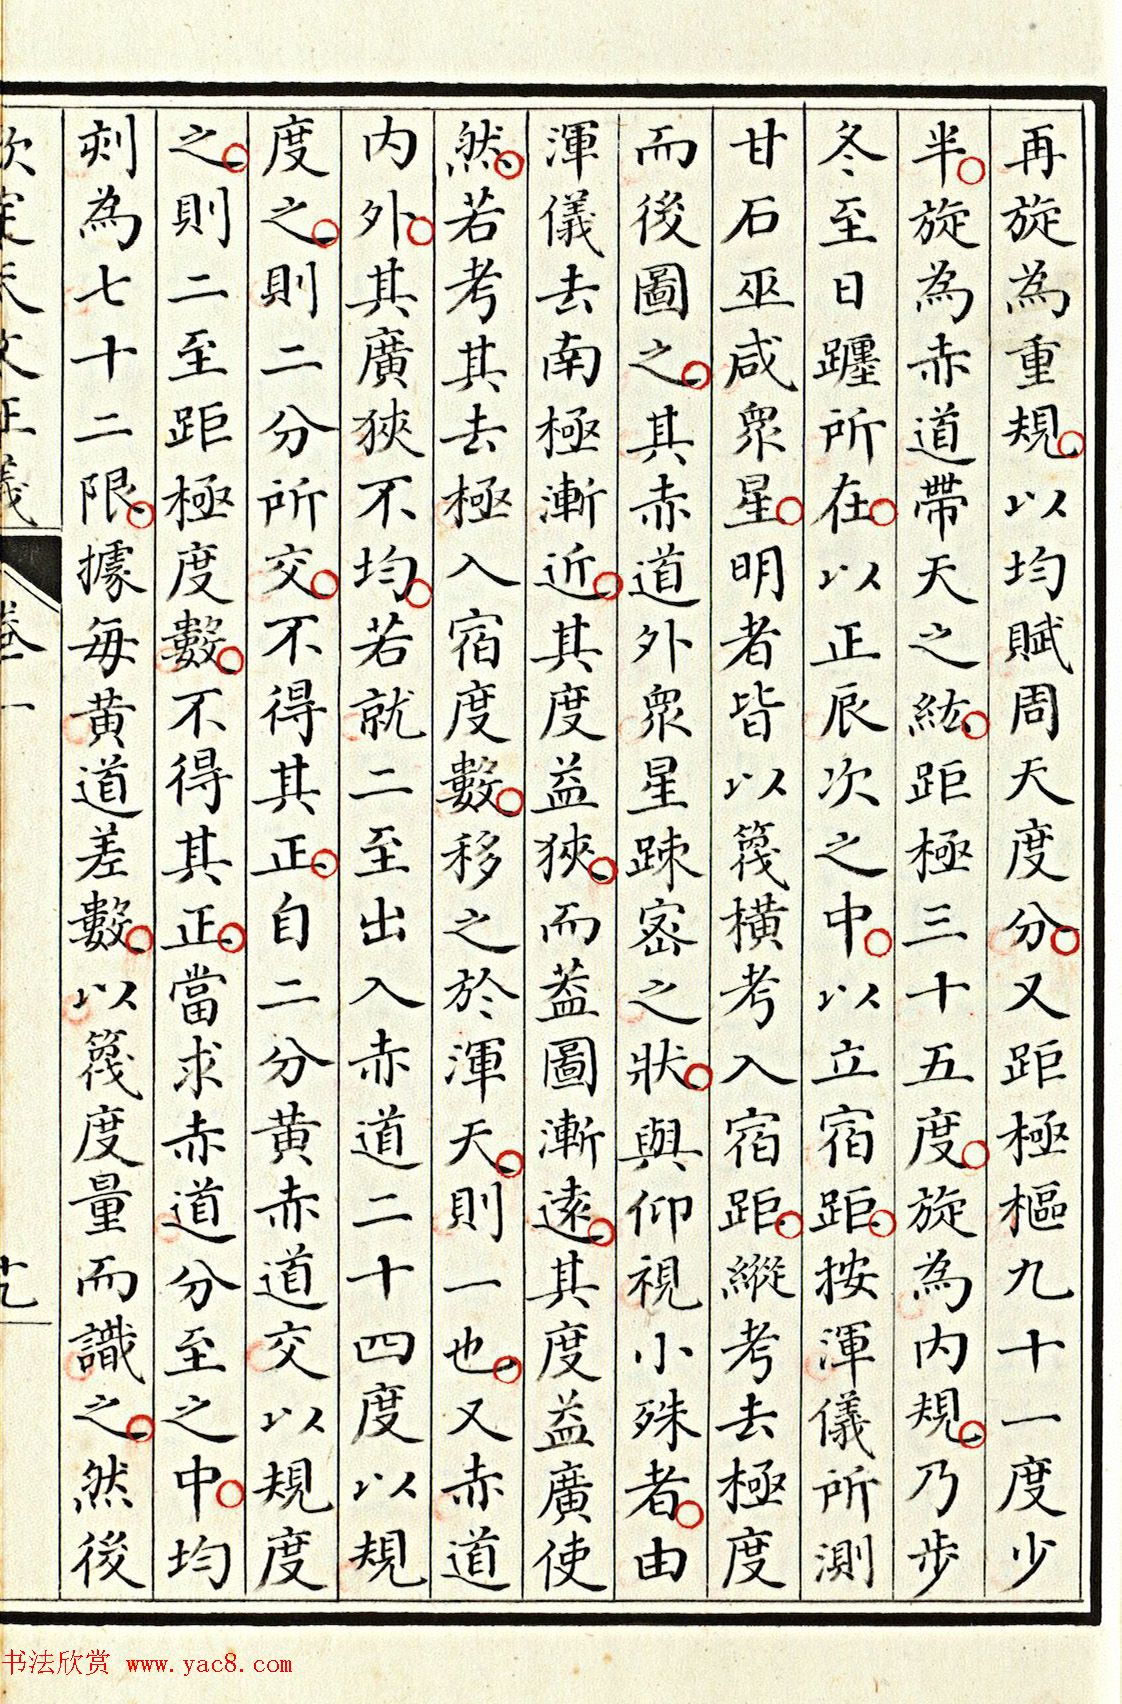 再旋為重規以均賦周天度分又距極樞九十一度少
半旋為赤道帶天之紘距極三十五度旋為内規乃步
冬至日躔所在以正辰次之中以立宿距按渾儀所測
甘石巫咸衆星明者皆以篾横考入宿距縱考去極度
而後圖之其赤道外衆星疎宻之狀與仰視小殊者由
渾儀去南極漸近其度益狹而葢圖漸逺其度益廣使
然若考其去極入宿度數移之於渾天則一也又赤道
内外其廣狹不均若就二至出入赤道二十四度以規
度之則二分所交不得其正自二分黄赤道交以規度
之則二至距極度數不得其正當求赤道分至之中均
刺為七十二限據每黄道差數以篾度量而識之然後
欽定天文正義
卷一
书法欣赏 www.yac8.com